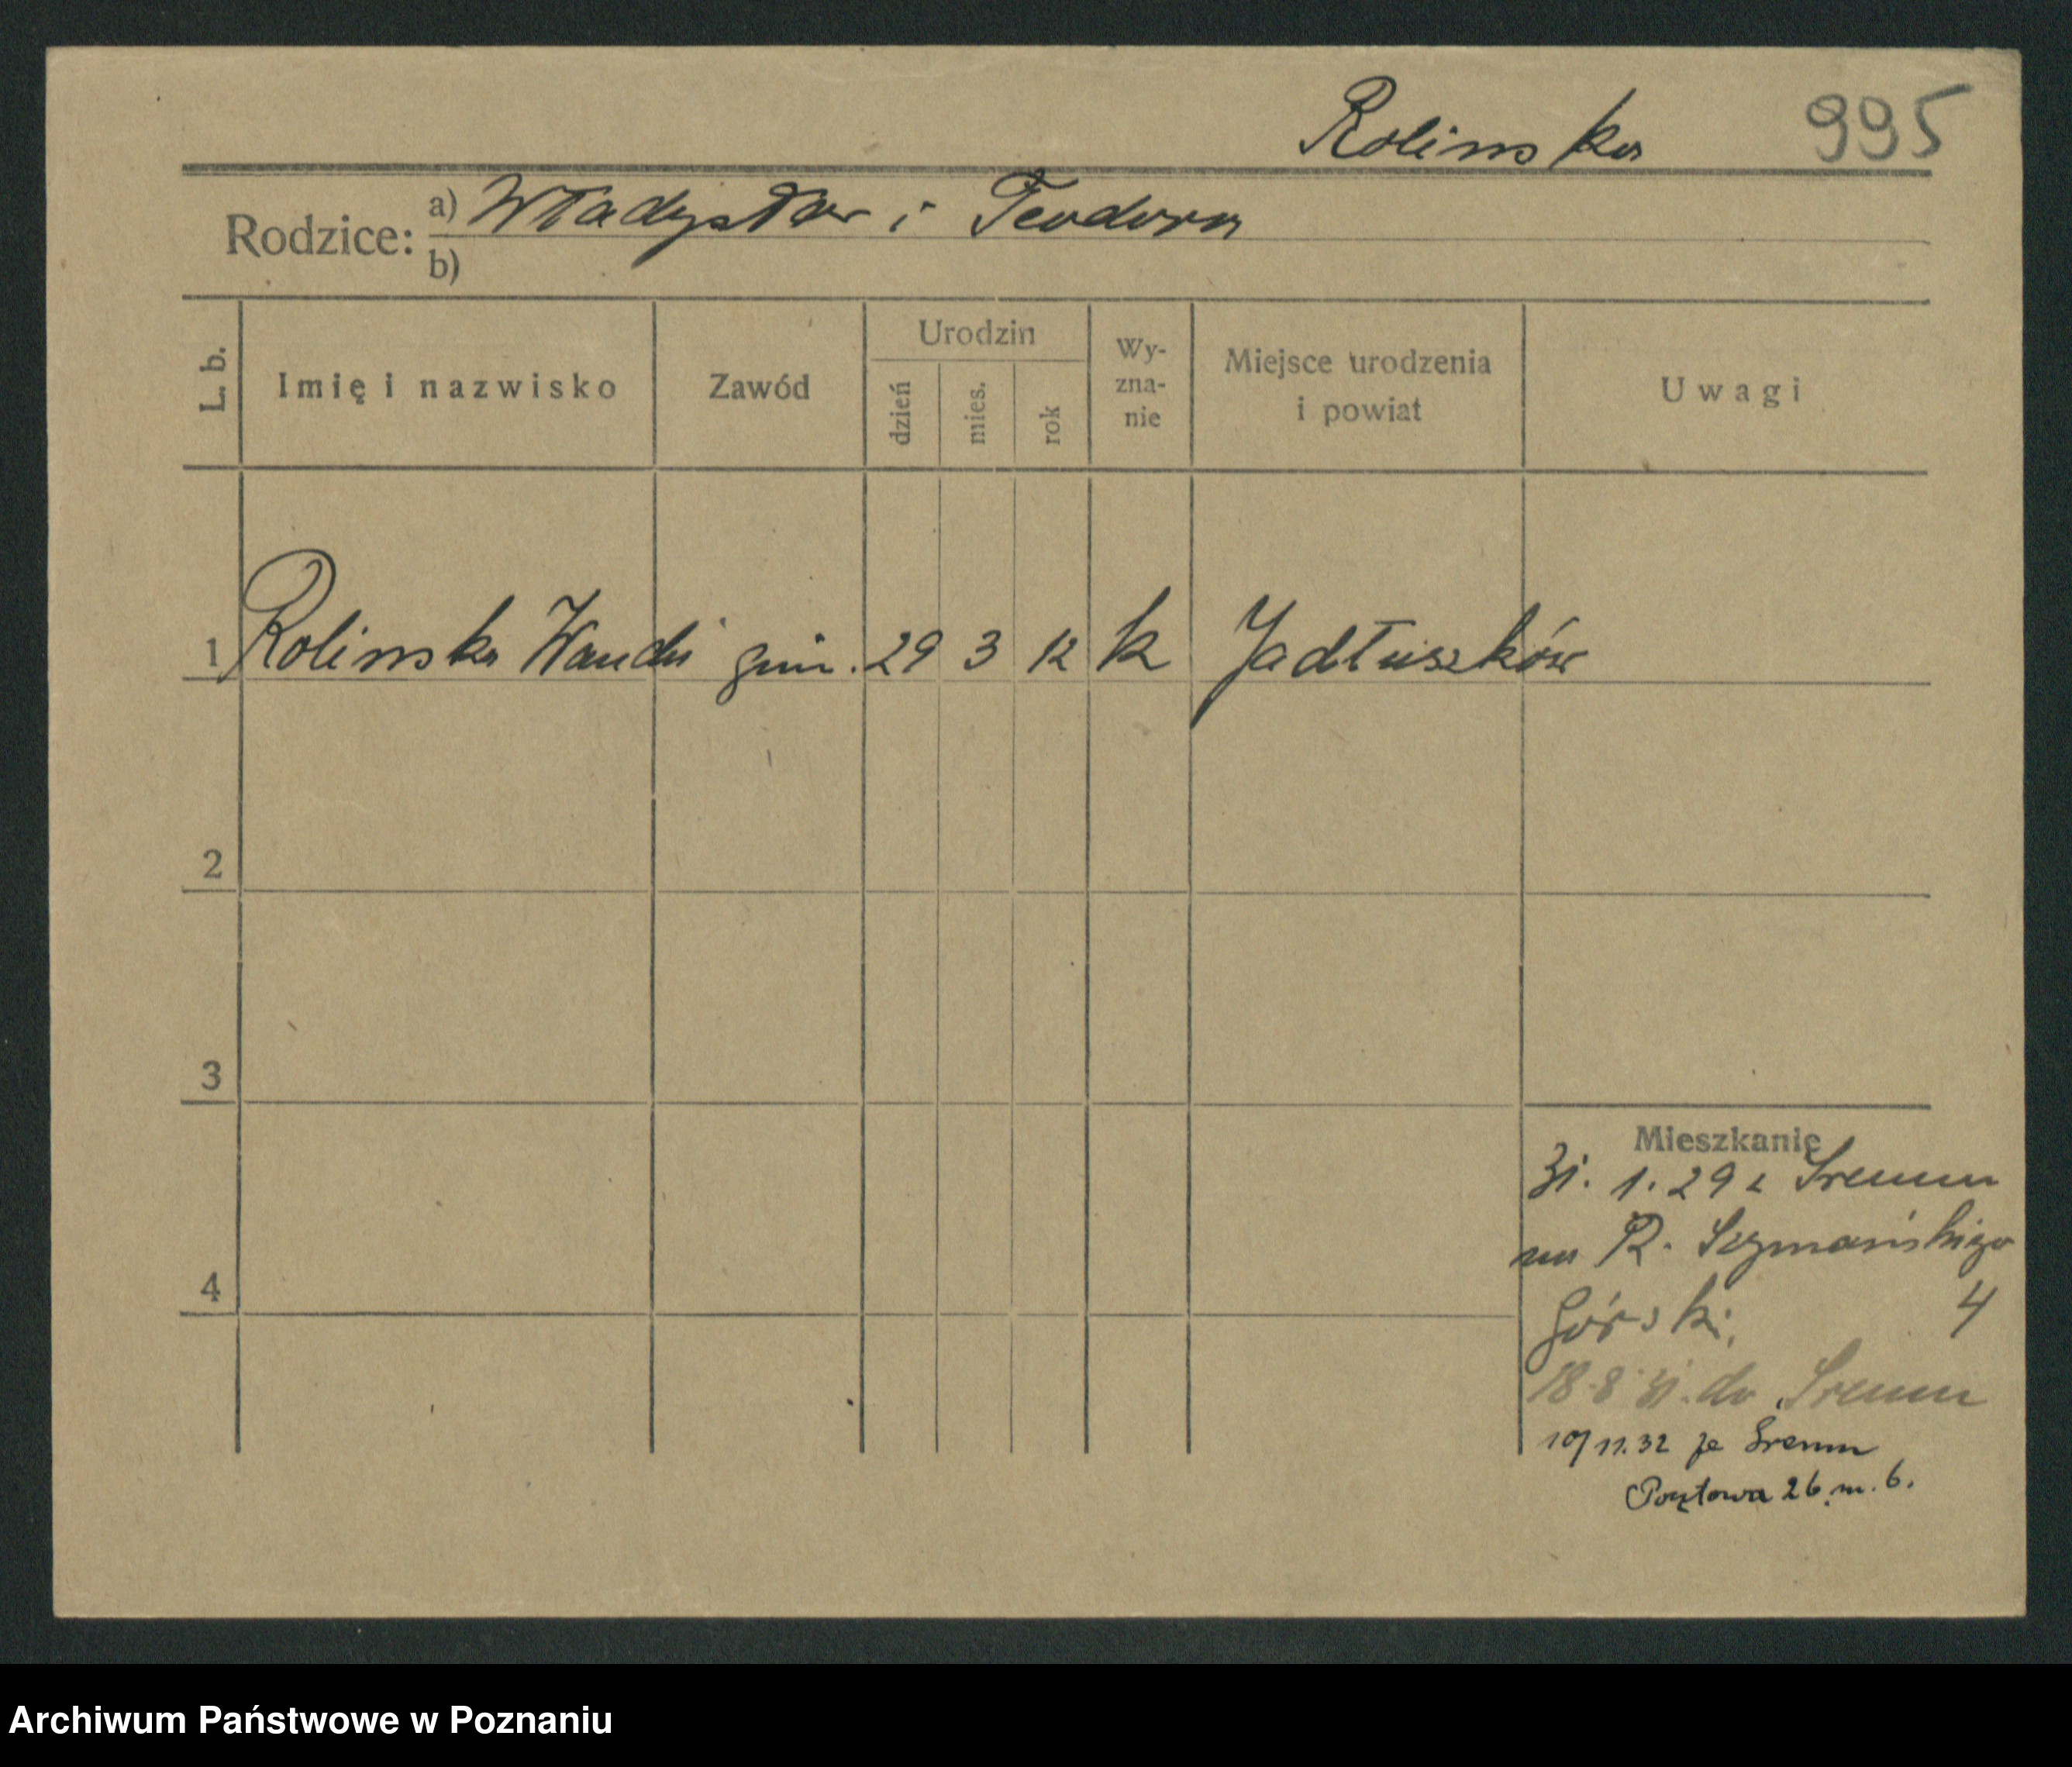 Rolinska 995
Rodzice: a) Władysław i Teodora
b)
L. b. Imię i nazwisko Zawód Urodzin dzień mies. rok Wy-zna-nie Miejsce urodzenia i powiat Uwagi
1 Rolinska Wanda gim. 29 3 12 k Jadłuszków
2
3
4
Mieszkanie
31. 1. 29 z Sremu
na R. Szymańskiego
Górski, 4
18 8 31. do Sremu
10/11.32 ze Sremu
Pocztowa 26 m. 6.
Archiwum Państwowe w Poznaniu